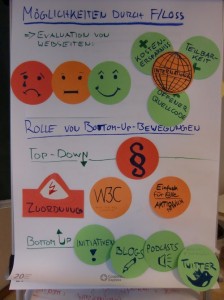 MÖGLICHKEITEN DURCH F/LOSS
EVALUATION VON
KOSTEN-
ERSPARNIS
TEILBAR-
KEIT
OFFENER
QUELLCODE
ROLLE VON BOTTOM-UP-BEWEGUNGEN
TOP-DOWN
§
ZUORDNUNG
W3C
Einfach
für Alle
BOTTOM UP
INITIATIVEN
BLOGS
PODCASTS
TWITTER